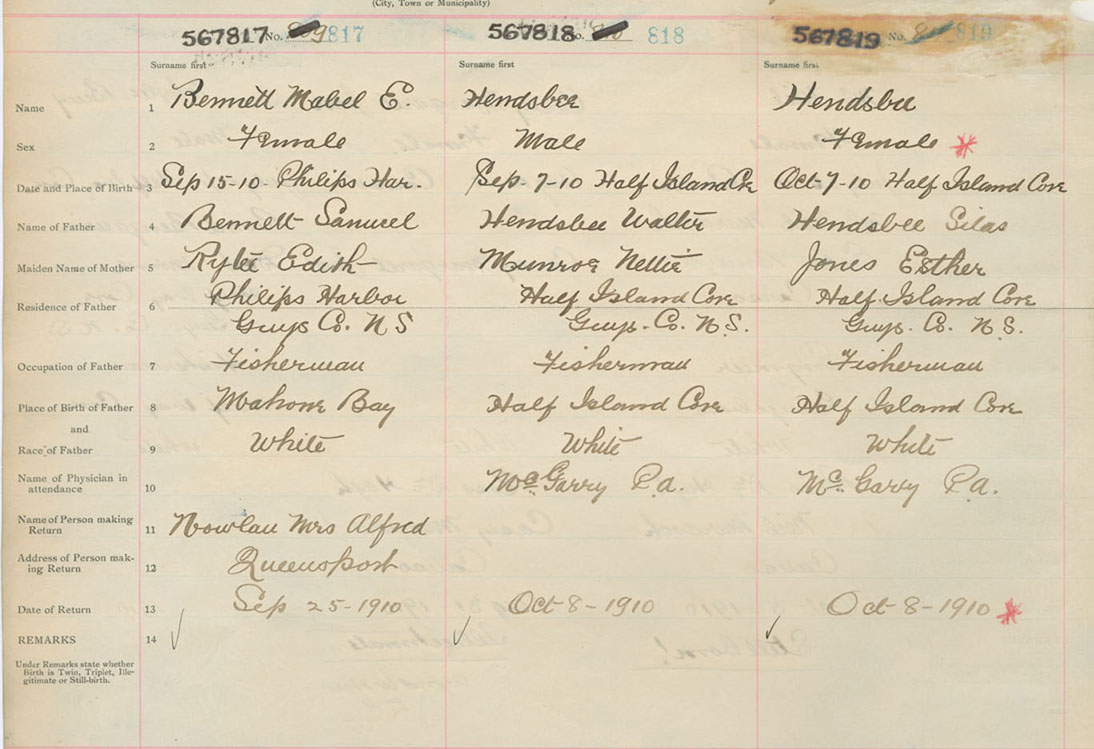 (City, Town or Municipality)
567817 No. 817 567818 No. 818 567819 No. 819
Surname first Surname first Surname first
Name 1 Bennett Mabel E. Hendsbee Hendsbee
Sex 2 Female Male Female
Date and Place of Birth 3 Sep 15-10 Philips Har. Sep. 7-10 Half Island Cove Oct 7-10 Half Island Cove
Name of Father 4 Bennett Samuel Hendsbee Walter Hendsbee Silas
Maiden Name of Mother 5 Edith Munroe Nettie Jones Esther
Residence of Father 6 Philips Harbor Half Island Cove Half Island Cove
Guys Co. N S Guys. Co. N.S. Guys. Co. N.S.
Occupation of Father 7 Fisherman Fisherman Fisherman
Place of Birth of Father 8 Mahone Bay Half Island Cove Half Island Cove
and
Race of Father 9 White White White
Name of Physician in
attendance 10 McGarry P.a. McGarry P.a.
Name of Person making
Return 11 Nowlan Mrs Alfred
Address of Person mak-
ing Return 12 Queensport
Date of Return 13 Sep 25-1910 Oct 8-1910 Oct 8-1910
REMARKS 14
Under Remarks state whether
Birth is Twin, Triplet, Ille-
gitimate or Still-birth.